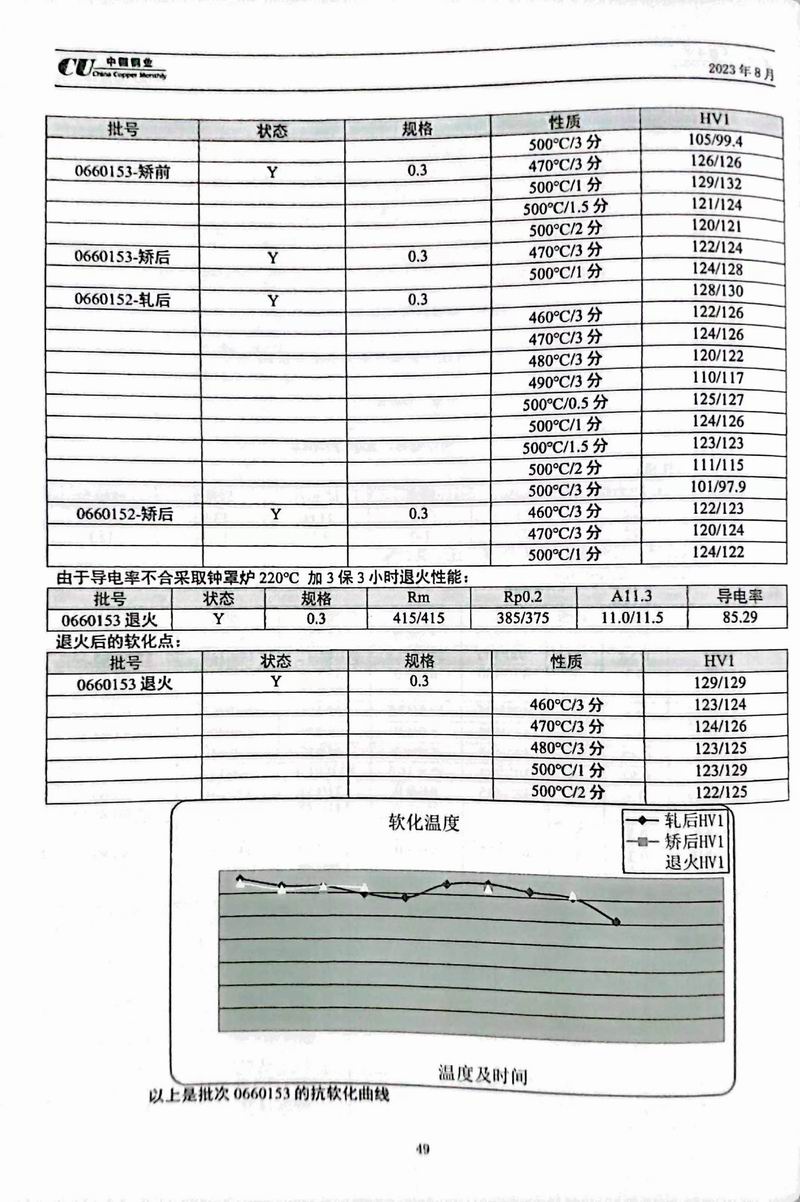 CU 中国铜业
China Copper Monthly
2023年8月
批号 状态 规格 性质 HV1
500℃/3分 105/99.4
0660153-矫前 Y 0.3 470℃/3分 126/126
500℃/1分 129/132
500℃/1.5分 121/124
500℃/2分 120/121
0660153-矫后 Y 0.3 470℃/3分 122/124
500℃/1分 124/128
0660152-轧后 Y 0.3 128/130
460℃/3分 122/126
470℃/3分 124/126
480℃/3分 120/122
490℃/3分 110/117
500℃/0.5分 125/127
500℃/1分 124/126
500℃/1.5分 123/123
500℃/2分 111/115
500℃/3分 101/97.9
0660152-矫后 Y 0.3 460℃/3分 122/123
470℃/3分 120/124
500℃/1分 124/122
由于导电率不合采取钟罩炉220℃ 加3保3小时退火性能：
批号 状态 规格 Rm Rp0.2 A11.3 导电率
0660153退火 Y 0.3 415/415 385/375 11.0/11.5 85.29
退火后的软化点：
批号 状态 规格 性质 HV1
0660153退火 Y 0.3 129/129
460℃/3分 123/124
470℃/3分 124/126
480℃/3分 123/125
500℃/1分 123/129
500℃/2分 122/125
软化温度
轧后HV1
矫后HV1
退火HV1
温度及时间
以上是批次0660153的抗软化曲线
49